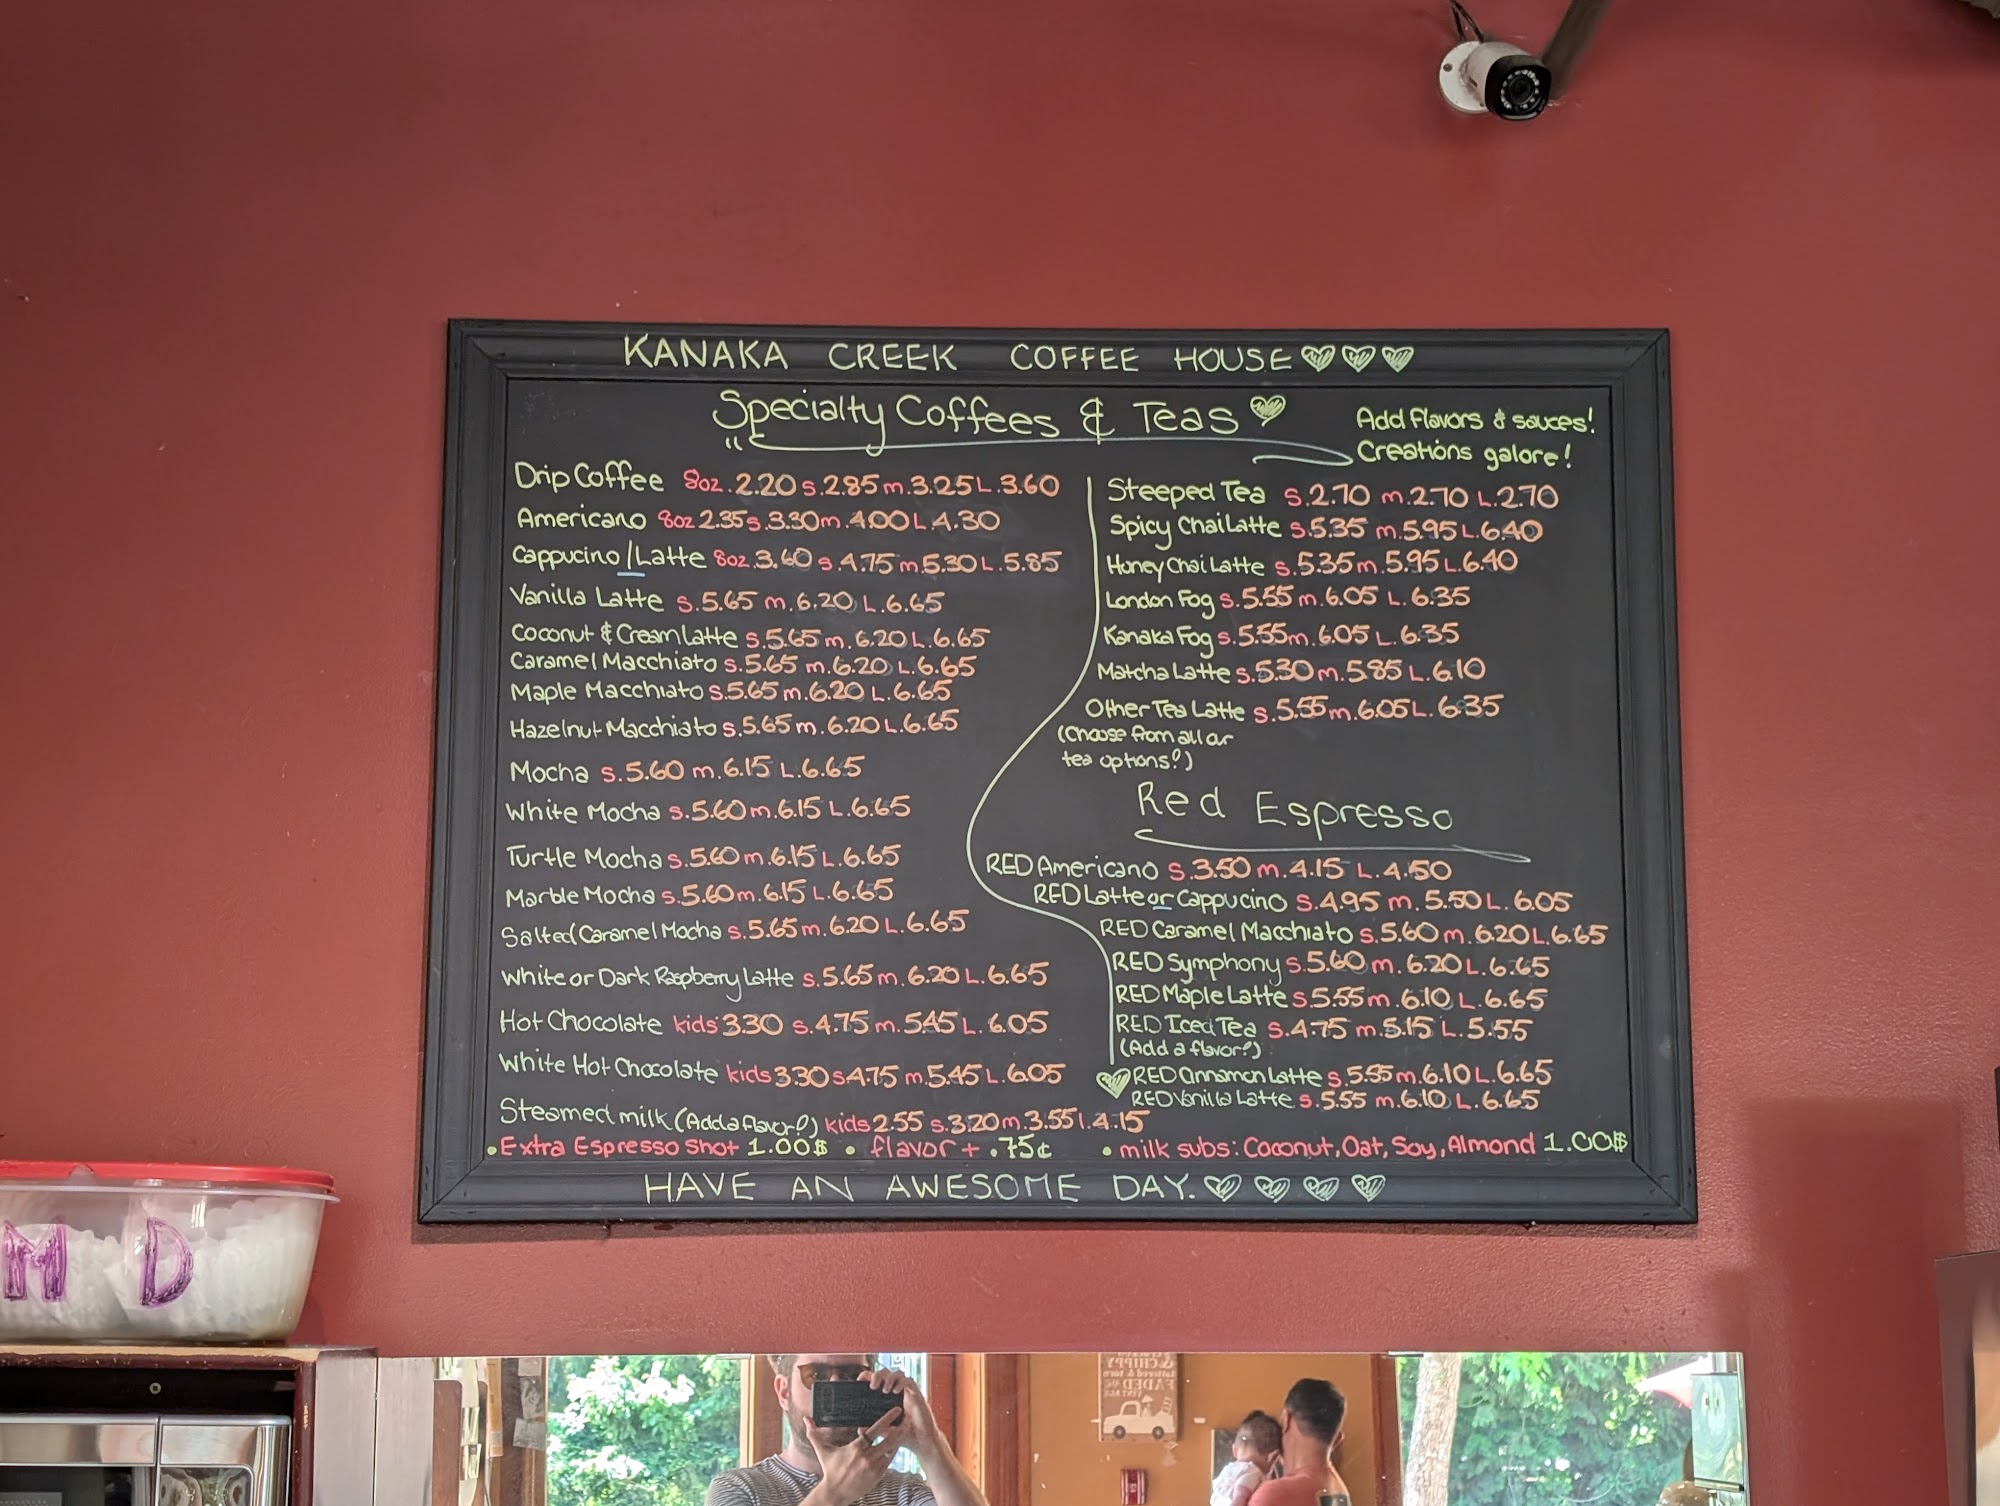 KANAKA CREEK COFFEE HOUSE
Specialty Coffees & Teas
Add flavors & sauces!
Creations galore!
Drip Coffee 8oz.2.20 s.2.85 m.3.25 L.3.60
Americano 8oz 2.35 s.3.30 m.4.00 L 4.30
Cappucino/Latte 8oz.3.60 s.4.75 m.5.30 L.5.85
Vanilla Latte s.5.65 m.6.20 L.6.65
Coconut & Cream Latte s.5.65 m.6.20 L.6.65
Caramel Macchiato s.5.65 m.6.20 L.6.65
Maple Macchiato s.5.65 m.6.20 L.6.65
Hazelnut Macchiato s.5.65 m.6.20 L.6.65
Mocha s.5.60 m.6.15 L.6.65
White Mocha s.5.60 m.6.15 L.6.65
Turtle Mocha s.5.60 m.6.15 L.6.65
Marble Mocha s.5.60 m.6.15 L.6.65
Salted Caramel Mocha s.5.65 m.6.20 L.6.65
White or Dark Raspberry Latte s.5.65 m.6.20 L.6.65
Hot Chocolate kids 3.30 s.4.75 m.5.45 L.6.05
White Hot Chocolate kids 3.30 s 4.75 m.5.45 L.6.05
Steamed milk (Add a flavor?) kids 2.55 s.3.20 m.3.55 l.4.15
Steeped Tea s.2.70 m.2.70 L.2.70
Spicy Chai Latte s.5.35 m.5.95 L.6.40
Honey Chai Latte s.5.35 m.5.95 L.6.40
London Fog s.5.55 m.6.05 L.6.35
Kanaka Fog s.5.55 m.6.05 L.6.35
Matcha Latte s.5.30 m.5.85 L.6.10
Other Tea Latte s.5.55 m.6.05 L.6.35
(Choose from all or
tea options?)
Red Espresso
RED Americano s.3.50 m.4.15 L.4.50
RED Latte or Cappucino s.4.95 m.5.50 L.6.05
RED Caramel Macchiato s.5.60 m.6.20 L.6.65
RED Symphony s.5.60 m.6.20 L.6.65
RED Maple Latte s.5.55 m.6.10 L.6.65
RED Iced Tea s.4.75 m.5.15 L.5.55
(Add a flavor?)
RED Cinnamon Latte s.5.55 m.6.10 L.6.65
RED Vanilla Latte s.5.55 m.6.10 L.6.65
• Extra Espresso Shot 1.00$ • flavor + .75¢ • milk subs: Coconut, Oat, Soy, Almond 1.00$
HAVE AN AWESOME DAY.
M D
& CHIPPY
FADED
VINTAGE